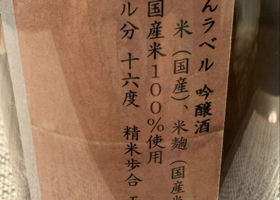 んラベル 吟醸酒
米(国産)、米麹(国産米
国産米100%使用
ル分 十六度 精米歩合